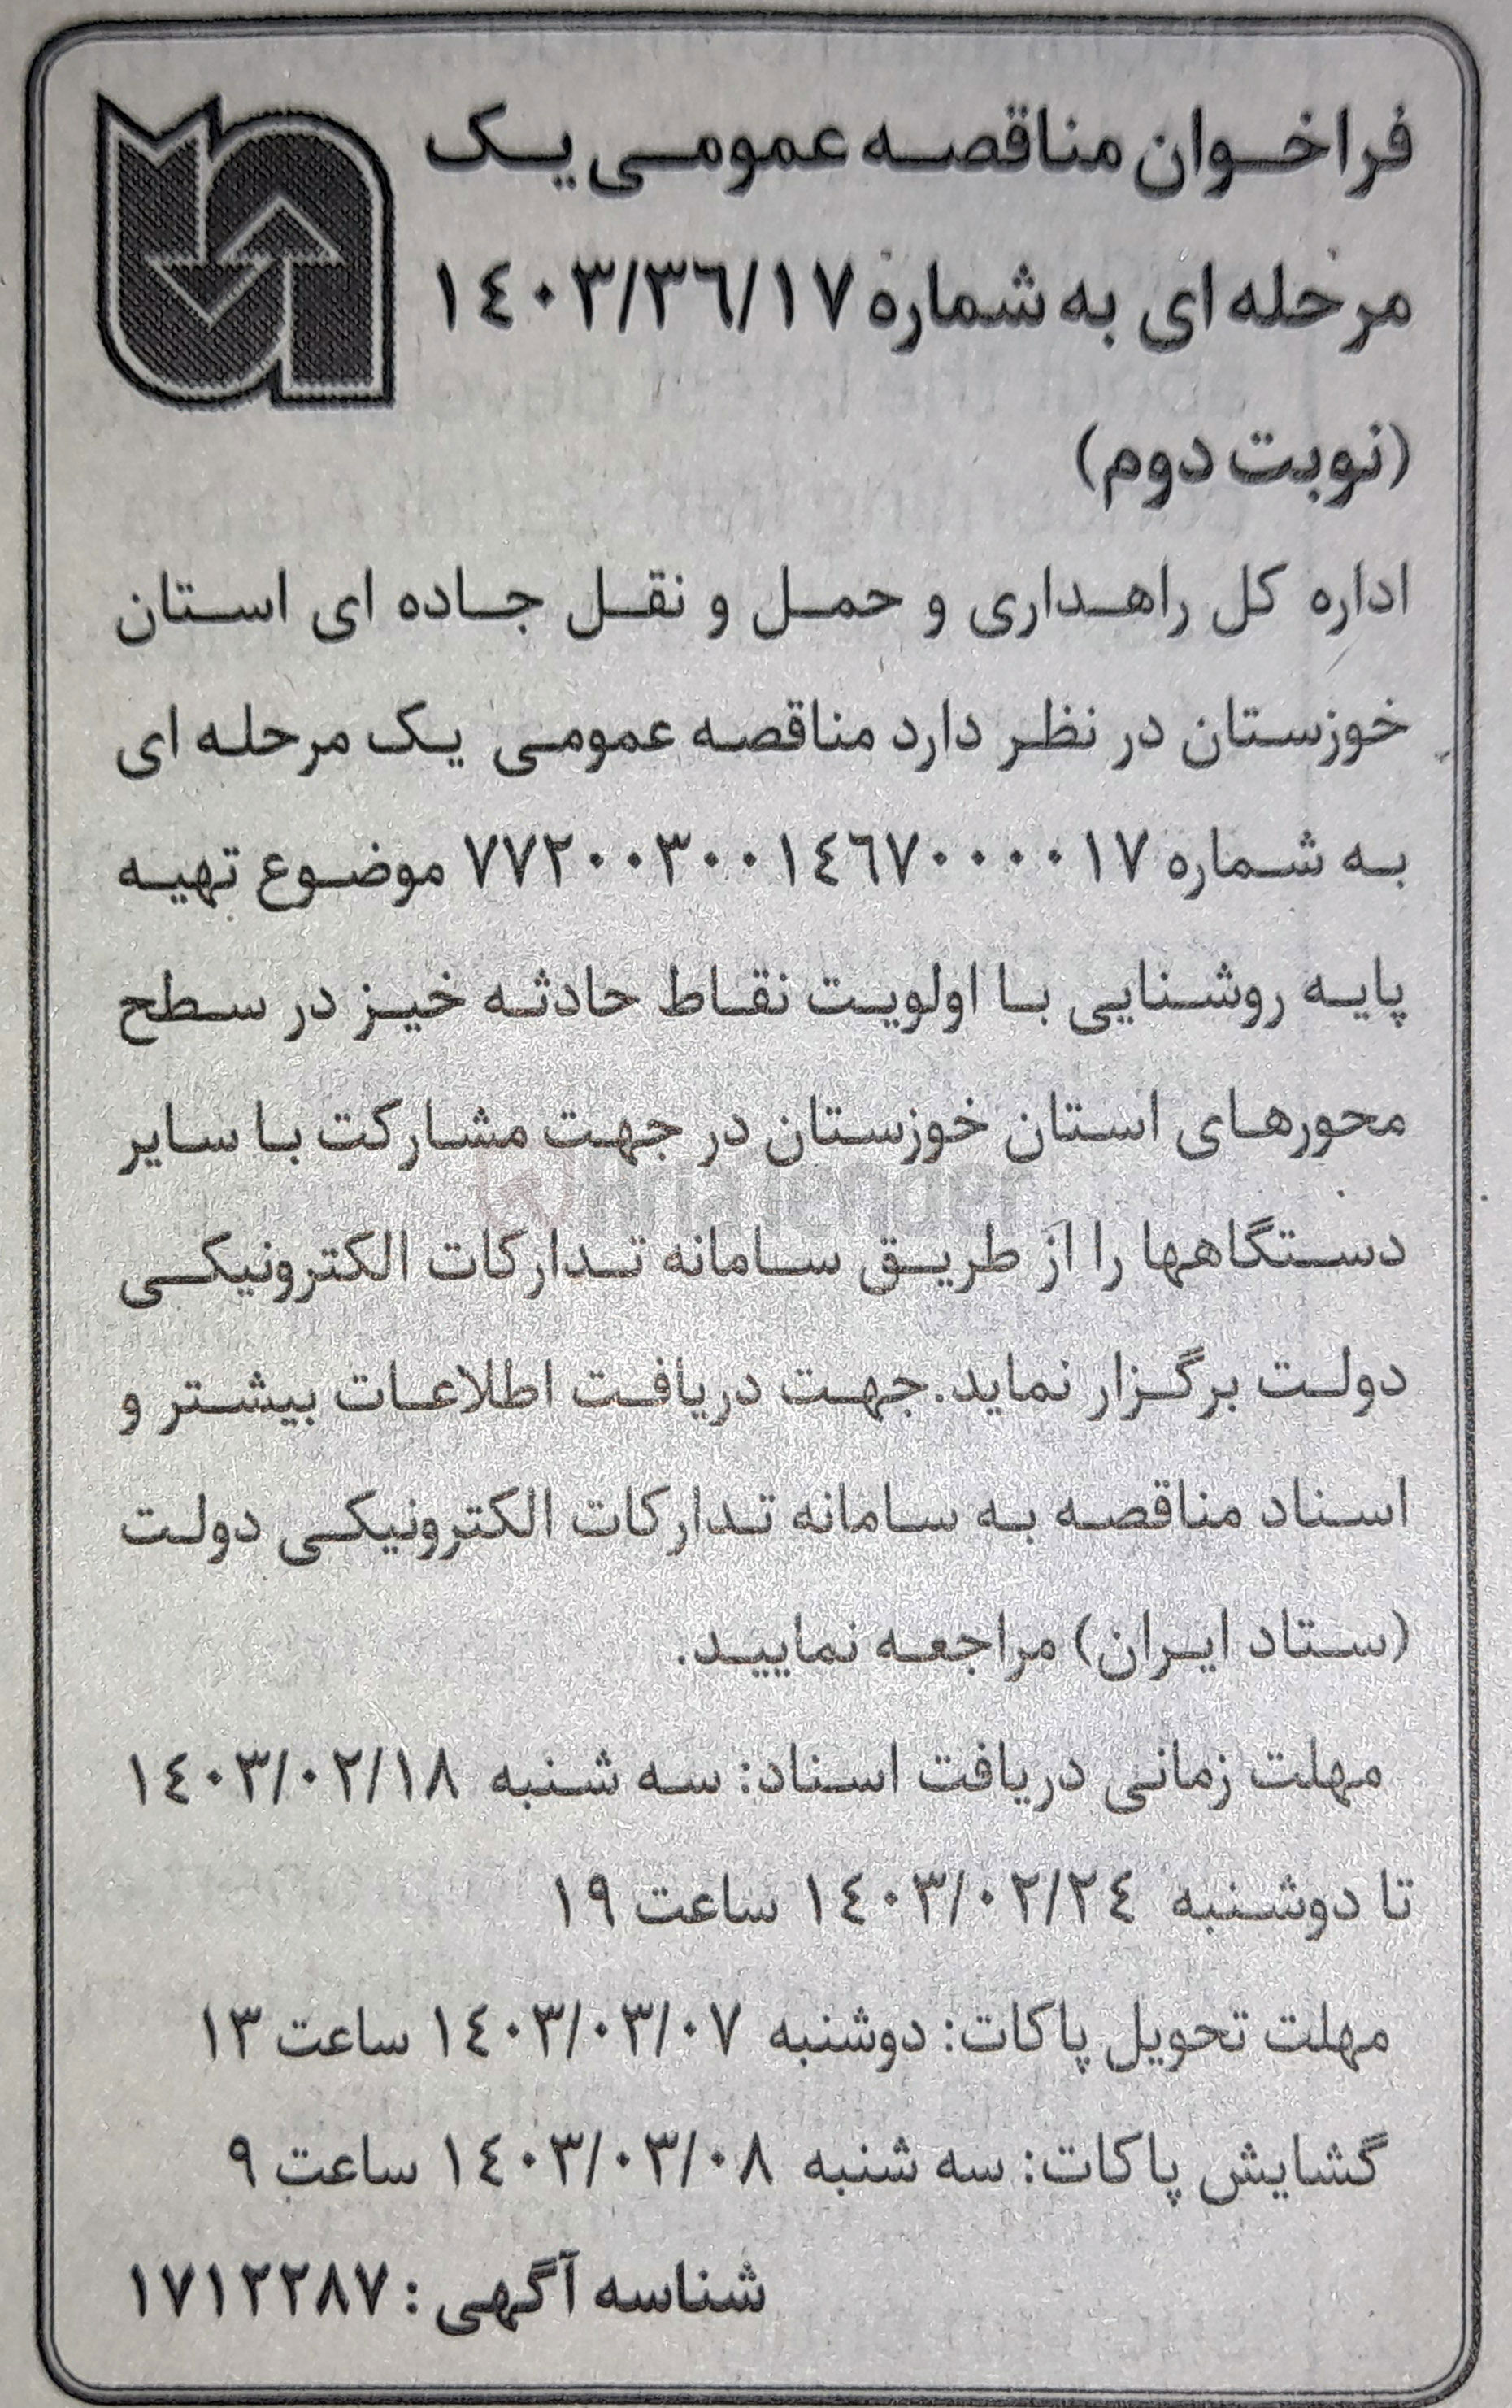 فراخوان مناقصه عمومی یک
مرحله ای به شماره ١٤٠٣/٣٦/١٧
(نوبت دوم)
اداره کل راهداری و حمل و نقل جاده ای استان
خوزستان در نظر دارد مناقصه عمومی یک مرحله ای
به شماره ٧٧٢٠٠٣٠٠١٤٦٧٠٠٠٠١٧ موضوع تهیه
پایه روشنایی با اولویت نقاط حادثه خیز در سطح
محورهای استان خوزستان در جهت مشارکت با سایر
دستگاهها را از طریق سامانه تدارکات الکترونیکی
دولت برگزار نماید. جهت دریافت اطلاعات بیشتر و
اسناد مناقصه به سامانه تدارکات الکترونیکی دولت
(ستاد ایران) مراجعه نمایید.
مهلت زمانی دریافت اسناد: سه شنبه ١٤٠٣/٠٢/١٨
تا دوشنبه ١٤٠٣/٠٢/٢٤ ساعت ١٩
مهلت تحویل پاکات: دوشنبه ١٤٠٣/٠٣/٠٧ ساعت ١٣
گشایش پاکات: سه شنبه ١٤٠٣/٠٣/٠٨ ساعت ٩
شناسه آگهی : ١٧١٢٢٨٧